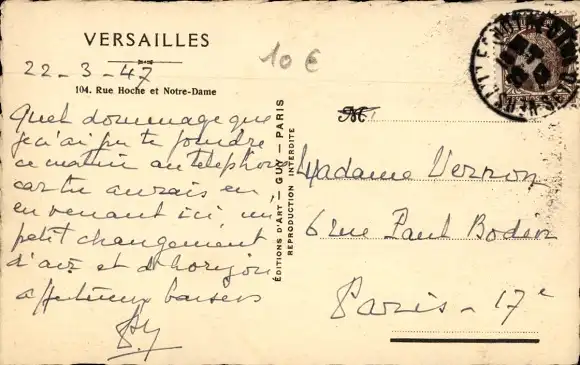 VERSAILLES
10 €
22-3-47
104. Rue Hoche et Notre-Dame
Quel dommage que
je n'ai pu te joindre
ce matin au telephone
car tu aurais eu,
en venant ici un
petit changement
d'air et d'horizon
affectueux baisers
ÉDITIONS D'ART — GUY — PARIS
REPRODUCTION INTERDITE
M
Madame Vernon
6 rue Paul Bodin
Paris - 17e